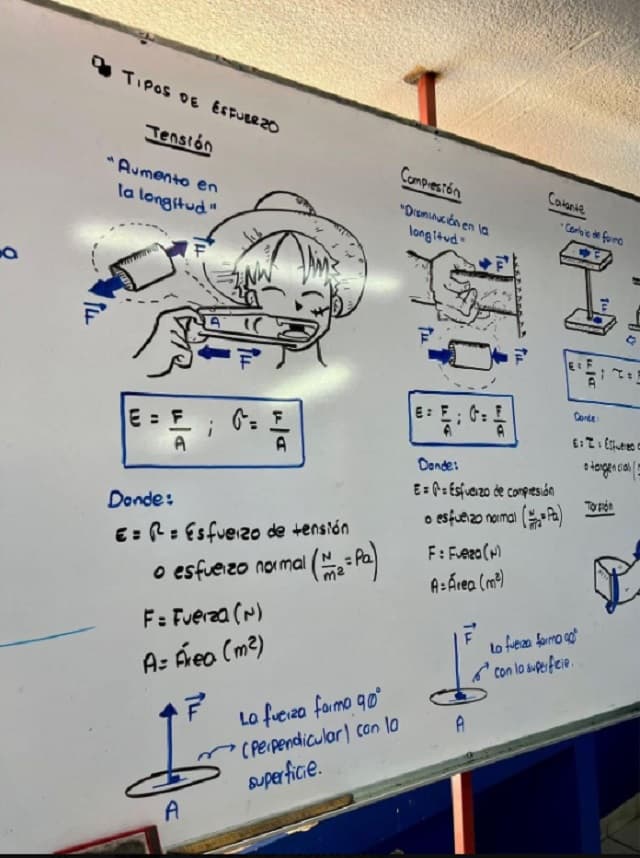 TIPOS DE ESFUERZO
Tensión
"Aumento en
la longitud"
F
F
A
F
E = F/A ; σ = F/A
Donde:
E = σ = Esfuerzo de tensión
o esfuerzo normal (N/m² = Pa)
F = Fuerza (N)
A = Área (m²)
F
A
La fuerza forma 90°
(perpendicular) con la
superficie.
Compresión
"Disminución en la
longitud"
F
F
F
E = F/A ; σ = F/A
Donde:
E = σ = Esfuerzo de compresión
o esfuerzo normal (N/m² = Pa)
F: Fuerza (N)
A = Área (m²)
F
A
La fuerza forma 90°
con la superficie.
Cortante
"Cambio de forma
F
F
E = F/A ; τ =
Donde:
E = τ : Esfuerzo
o tangencial
Torsión